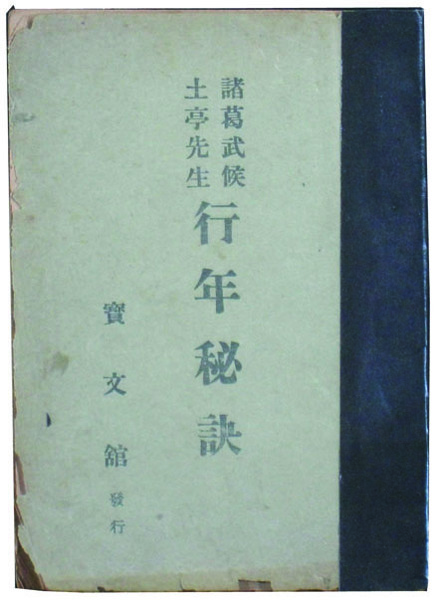 諸葛武候
土亭先生
行年秘訣
寶文舘發行